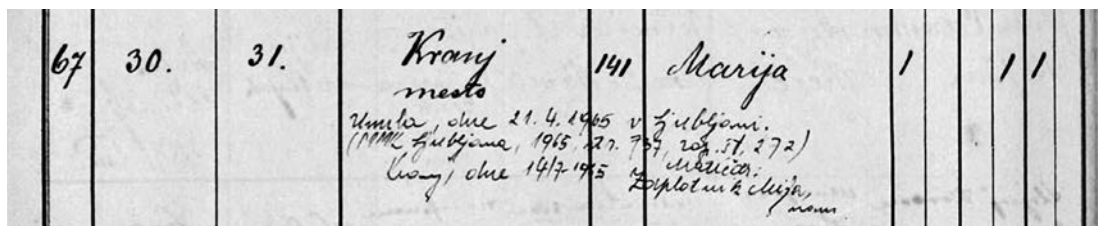 67 30. 31. Kranj 141 Marija 1 1 1
mesto
Umrla, dne 21. 4. 1965 v Ljubljani.
(MMK Ljubljana, 1965, str. 737, zap. št. 272)
Kranj, dne 14/7-1965 Matičar:
Zaplotnik Mija,